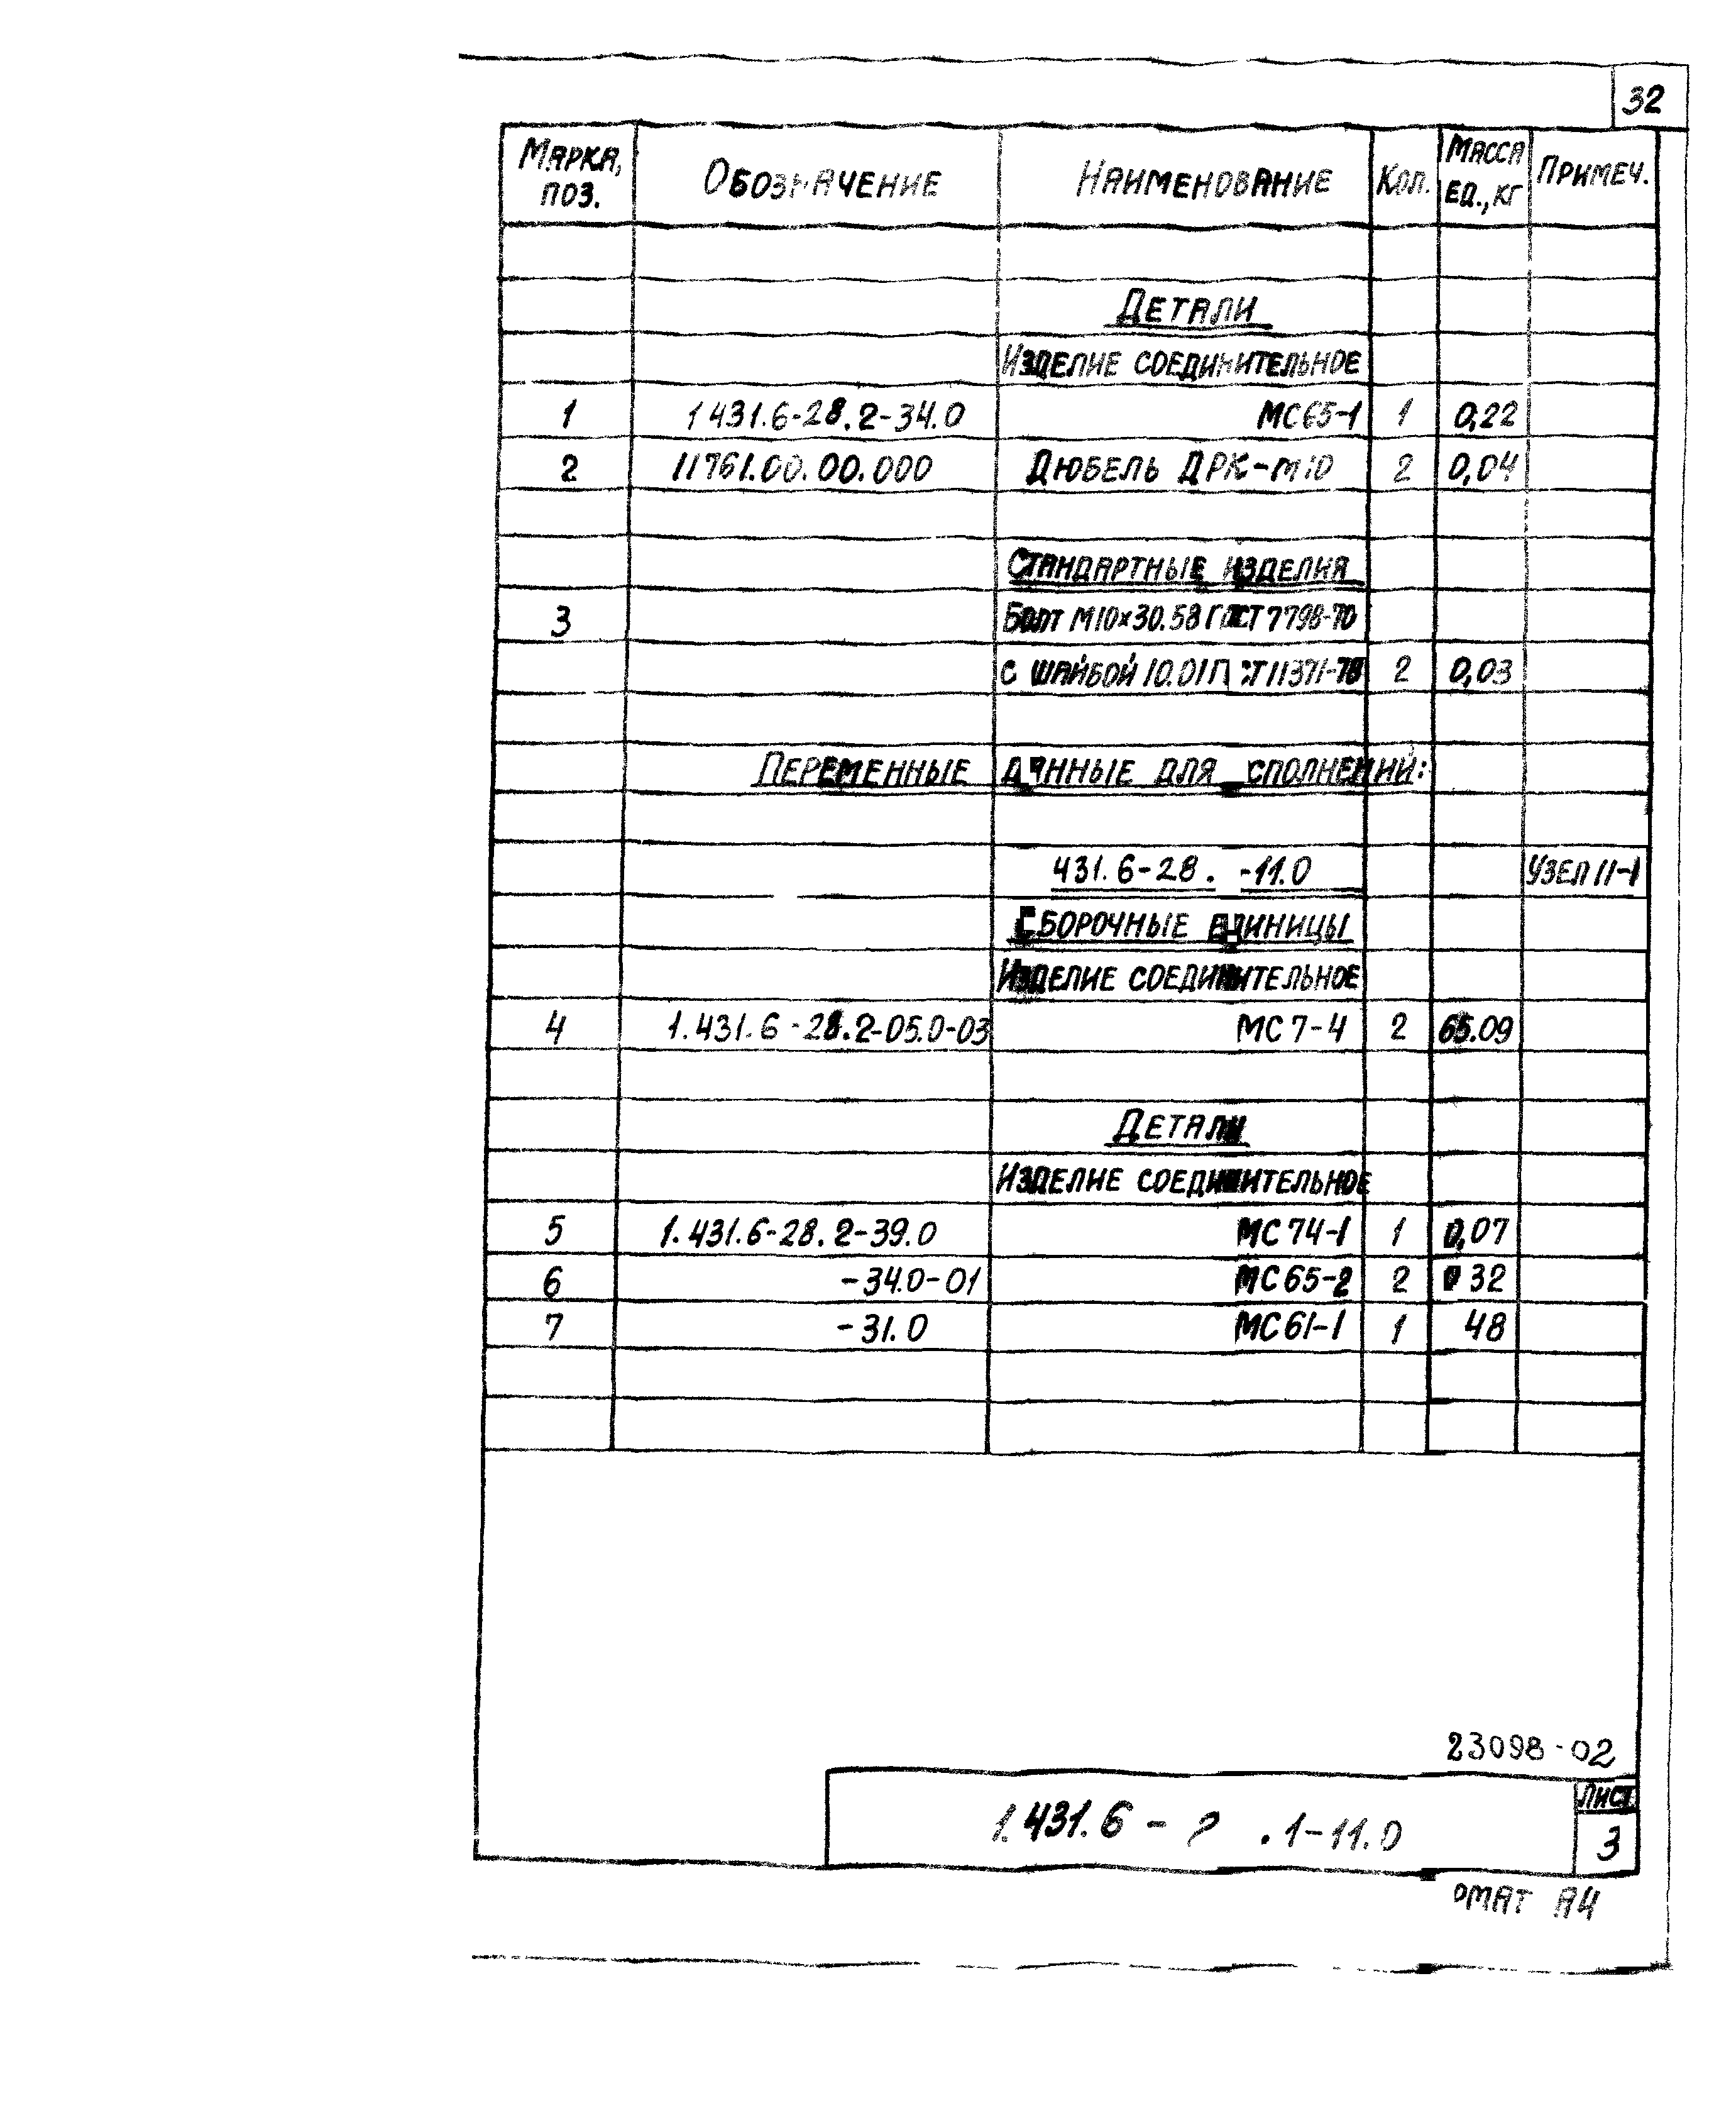 32
Марка, поз. Обозначение Наименование Кол. Масса ед., кг Примеч.
Детали
Изделие соединительное
1 1 431.6-28.2-34.0 МС65-1 1 0,22
2 11761.00.00.000 Дюбель ДРК-м10 2 0,04
Стандартные изделия
3 Болт М10×30.58 ГОСТ 7798-70
с шайбой 10.01 Г СТ 11371-78 2 0,03
Переменные данные для сполнений:
431.6-28. -11.0 Узел 11-1
Сборочные единицы
Изделие соединительное
4 1.431.6-28.2-05.0-03 МС7-4 2 65.09
Детали
Изделие соединительное
5 1.431.6-28.2-39.0 МС74-1 1 0,07
6 -34.0-01 МС65-2 2 0 32
7 -31.0 МС61-1 1 48
23098-02
1.431.6-2 .1-11.0
Лист
3
омат А4